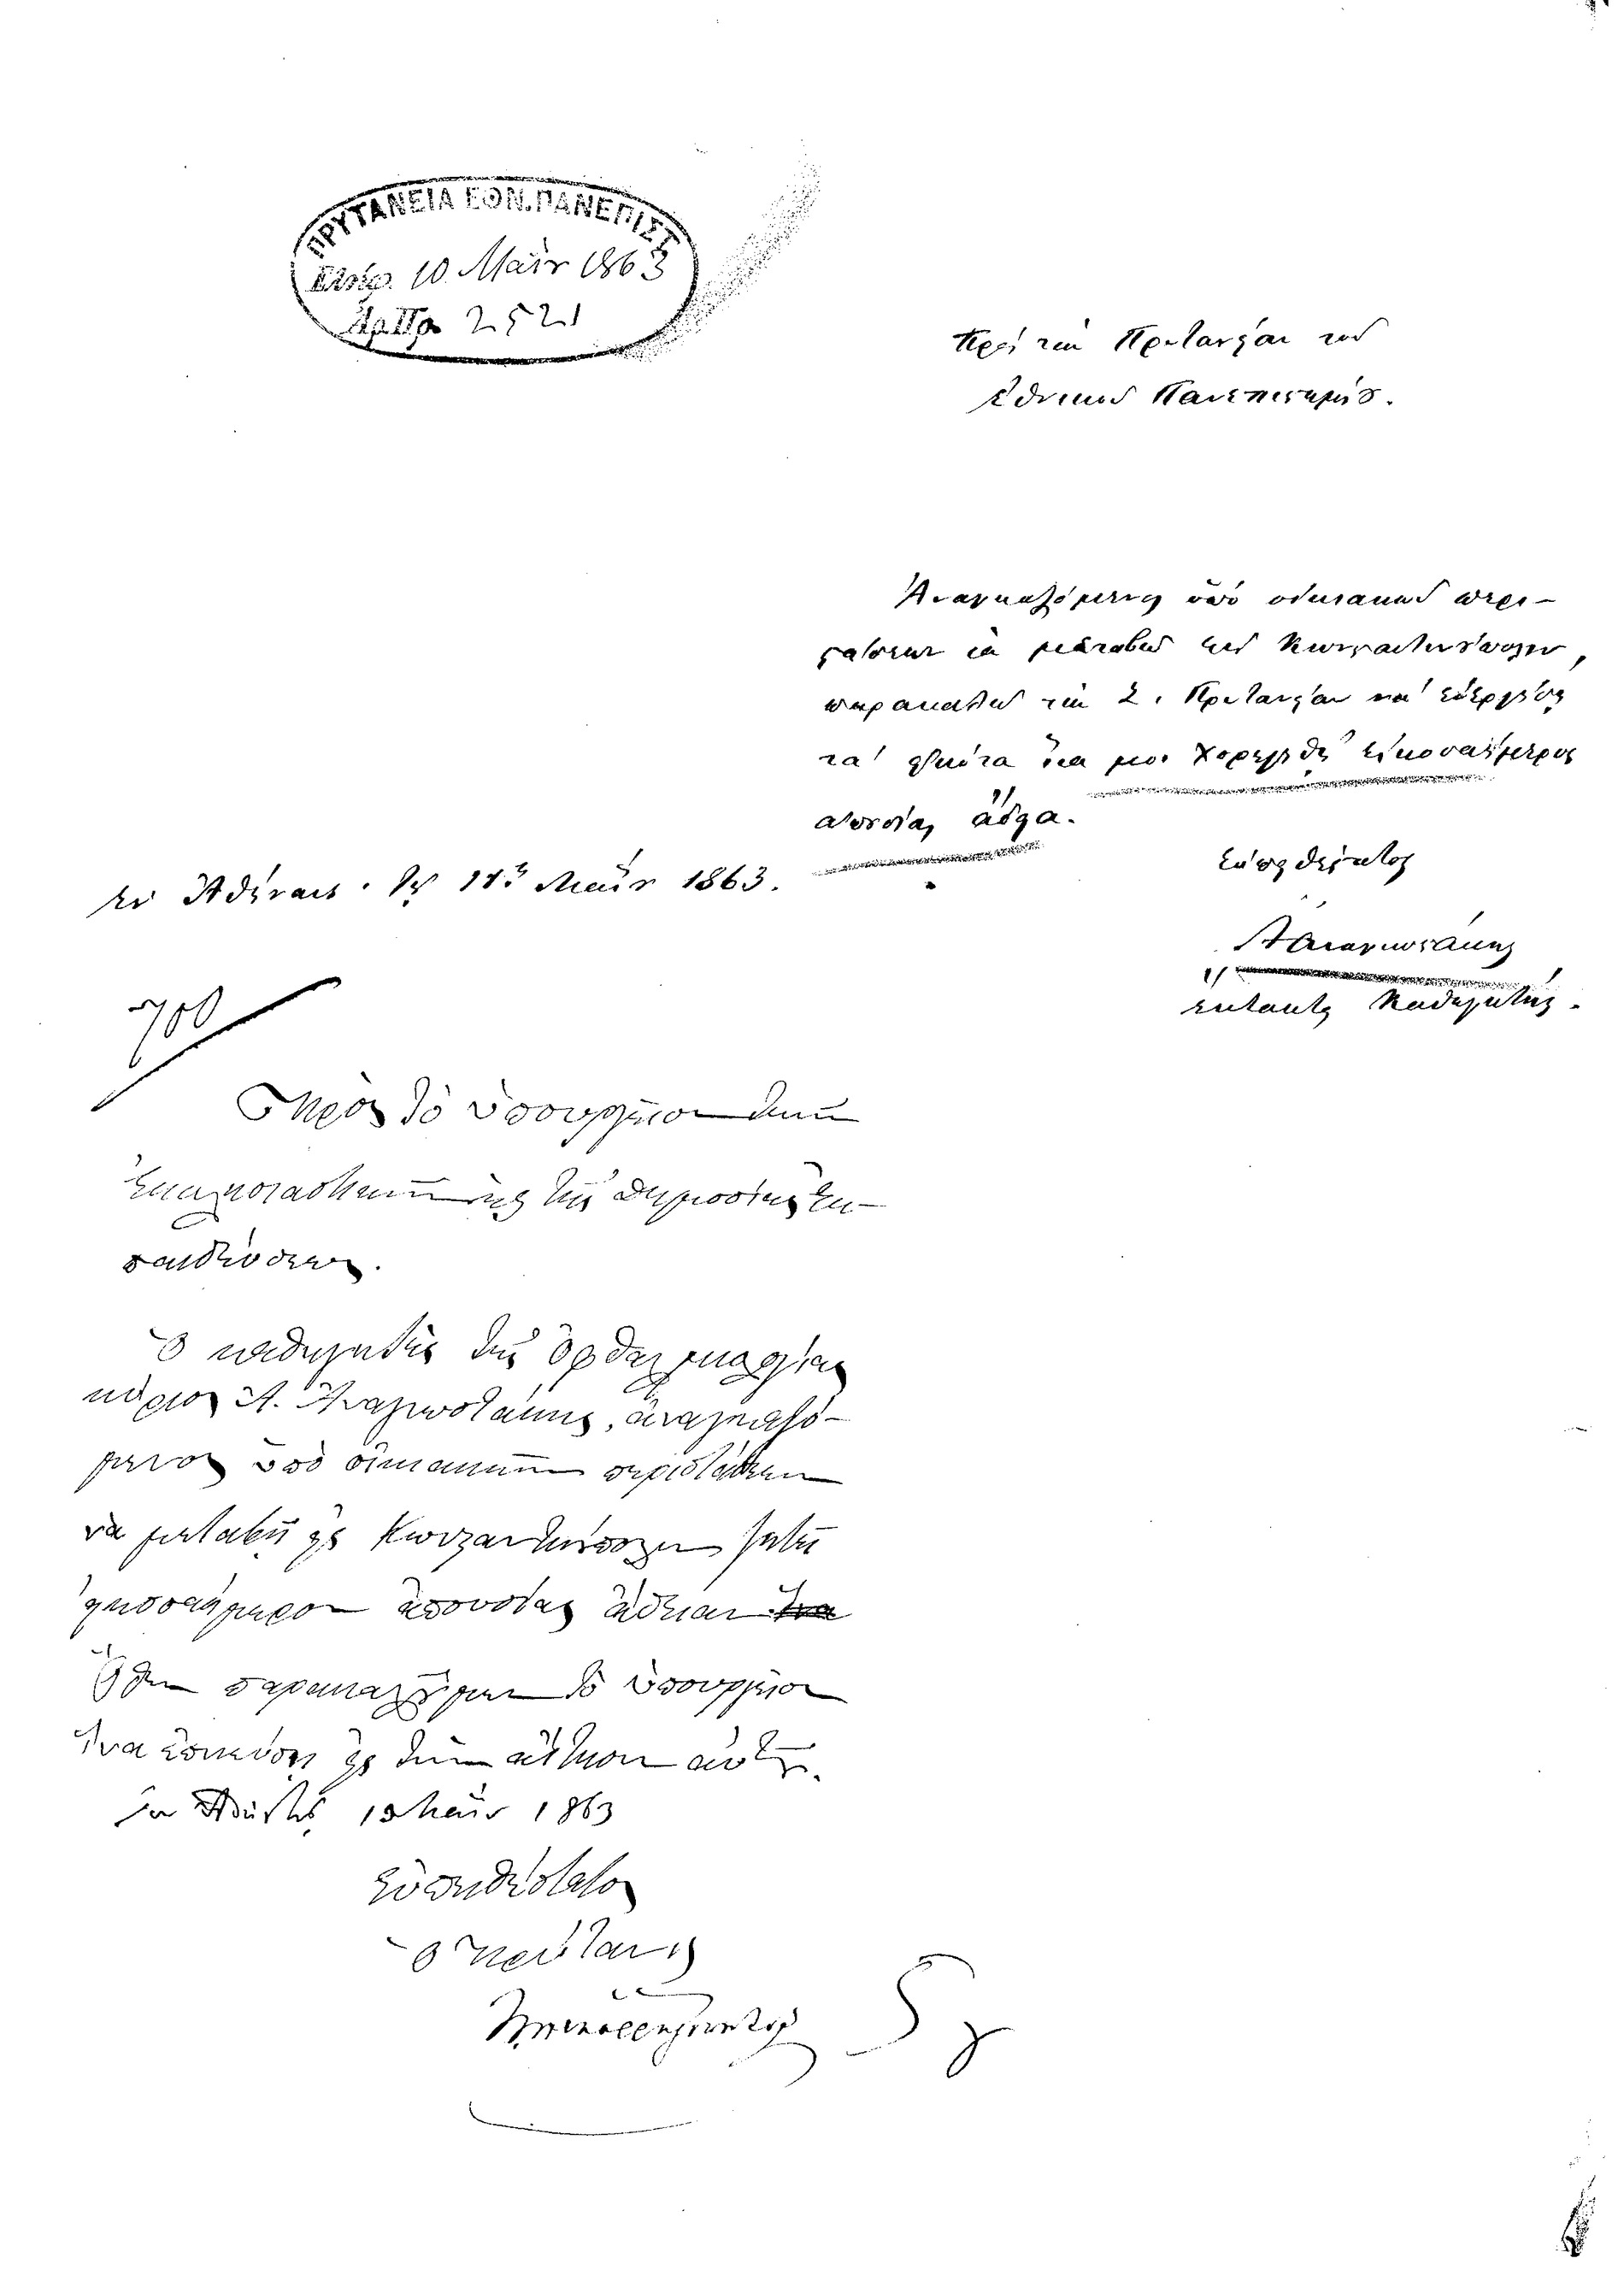 ΠΡΥΤΑΝΕΙΑ ΕΘΝ. ΠΑΝΕΠΙΣΤ
10 Μαΐου 1863
2521
Πρὸς τὴν Πρυτανείαν τοῦ
Ἐθνικοῦ Πανεπιστημίου.
Ἀναγκαζόμενος ὑπὸ οἰκιακῶν περι-
στάσεων νὰ μεταβῶ εἰς Κωνσταντινούπολιν,
παρακαλῶ τὴν Σ. Πρυτανείαν νὰ ἐνεργήσῃ
τὰ εἰκότα ἵνα μοι χορηγηθῇ εἰκοσαήμερος
ἀπουσίας ἄδεια.
Ἐν Ἀθήναις. τῇ Μαΐου 1863.
εὐπειθέστατος
Α Αναγνωστάκης
ἔκτακτος Καθηγητής.
Πρὸς τὸ Ὑπουργεῖον τῶν
Ἐκκλησιαστικῶν καὶ τῆς Δημοσίας Ἐκ-
παιδεύσεως.
Ὁ καθηγητὴς τῆς ὀφθαλμολογίας
κύριος Α. Ἀναγνωστάκης, ἀναγκαζό-
μενος ὑπὸ οἰκιακῶν περιστάσεων
νὰ μεταβῇ εἰς Κωνσταντινούπολιν ζητεῖ
εἰκοσαήμερον ἀπουσίας ἄδειαν
Ὅθεν παρακαλοῦμεν τὸ Ὑπουργεῖον
ἵνα εὐαρεστούμενον εἰς τὴν αἴτησιν αὐτοῦ.
10 Μαΐου 1863
Εὐπειθέστατος
ὁ Πρύτανις